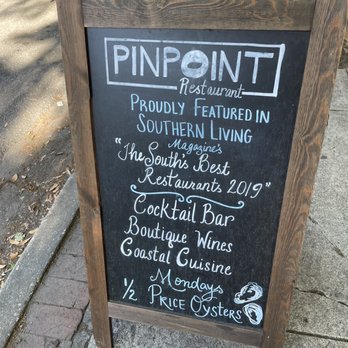 PINPOINT
Restaurant
PROUDLY FEATURED IN
SOUTHERN LIVING
Magazine's
"The South's Best
Restaurants 2019"
Cocktail Bar
Boutique Wines
Coastal Cuisine
Mondays
1/2 PRICE OYSTERS